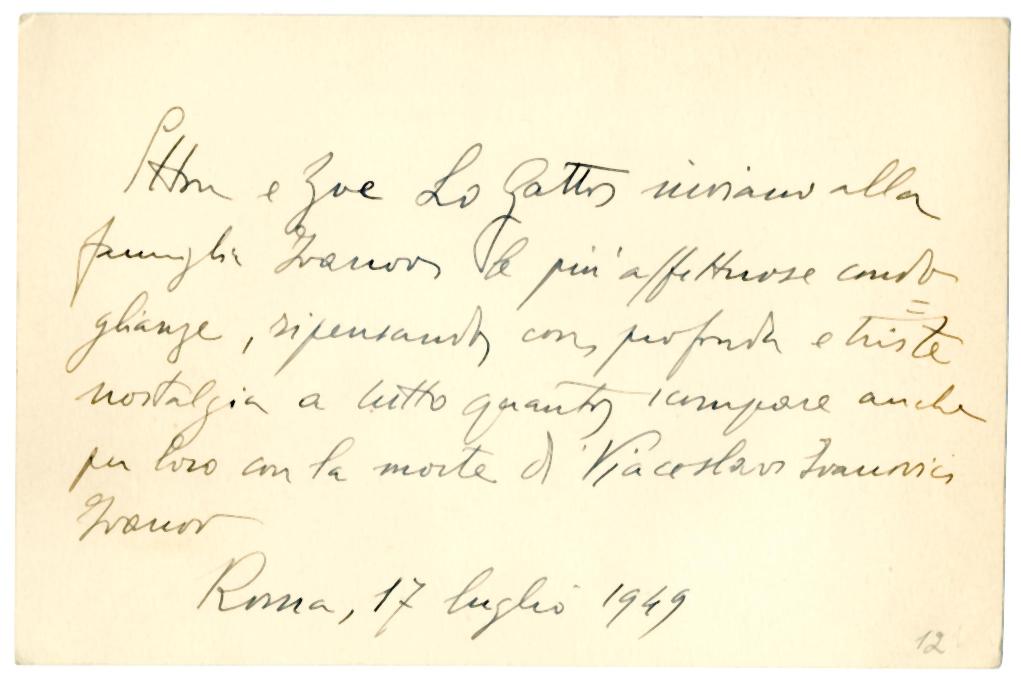 Ettore e Zoe Lo Gatto inviano alla
famiglia Ivanov le più affettuose condo=
glianze, ripensando con profonda e triste
nostalgia a tutto quanto scompare anche
per loro con la morte di Viaceslav Ivanovic
Ivanov
Roma, 17 luglio 1949
12